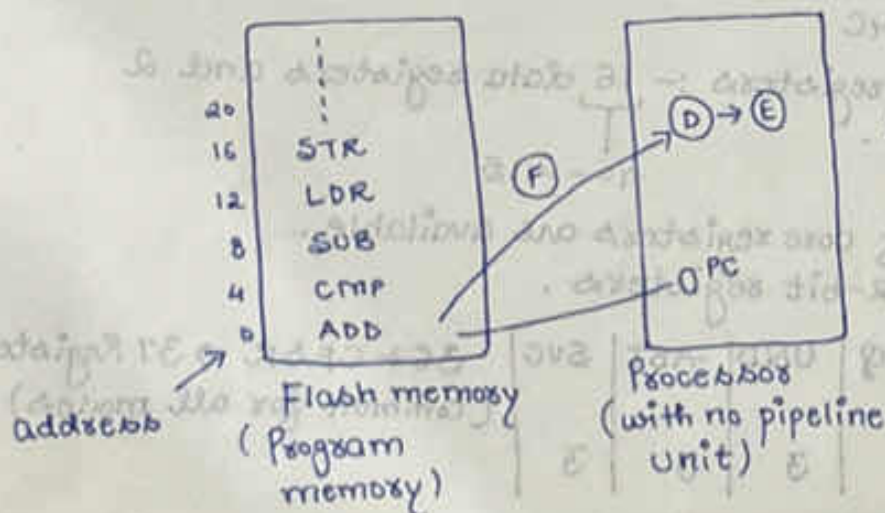 20
16 STR
12 LDR
8 SUB
4 CMP
0 ADD
address
Flash memory
(Program
memory)
F
D → E
0 PC
Processor
(with no pipeline
unit)